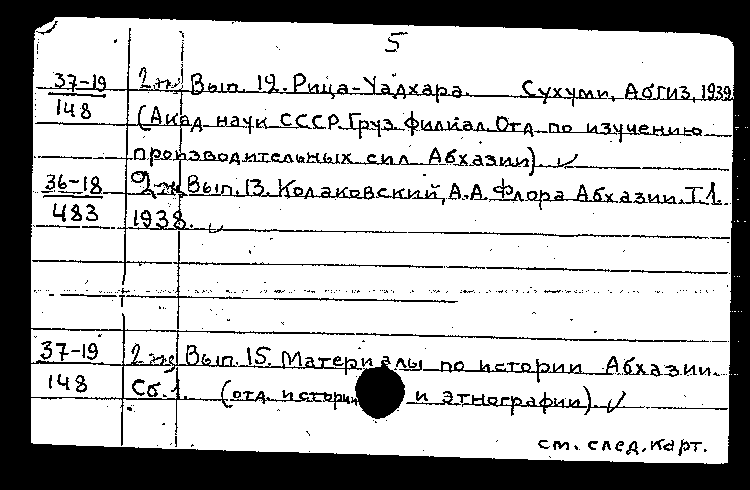 5
37-19 2 эк Вып. 12. Рица-Уадхара. Сухуми, Абгиз, 1939
148 (Акад. наук СССР. Груз. филиал. Отд. по изучению
производительных сил Абхазии).
36-18 2 эк Вып. 13. Колаковский, А.А. Флора Абхазии. Т.1.
483 1938.
37-19 2 эк Вып. 15. Материалы по истории Абхазии.
148 Сб. 1. (отд. истории и этнографии).
см. след. карт.